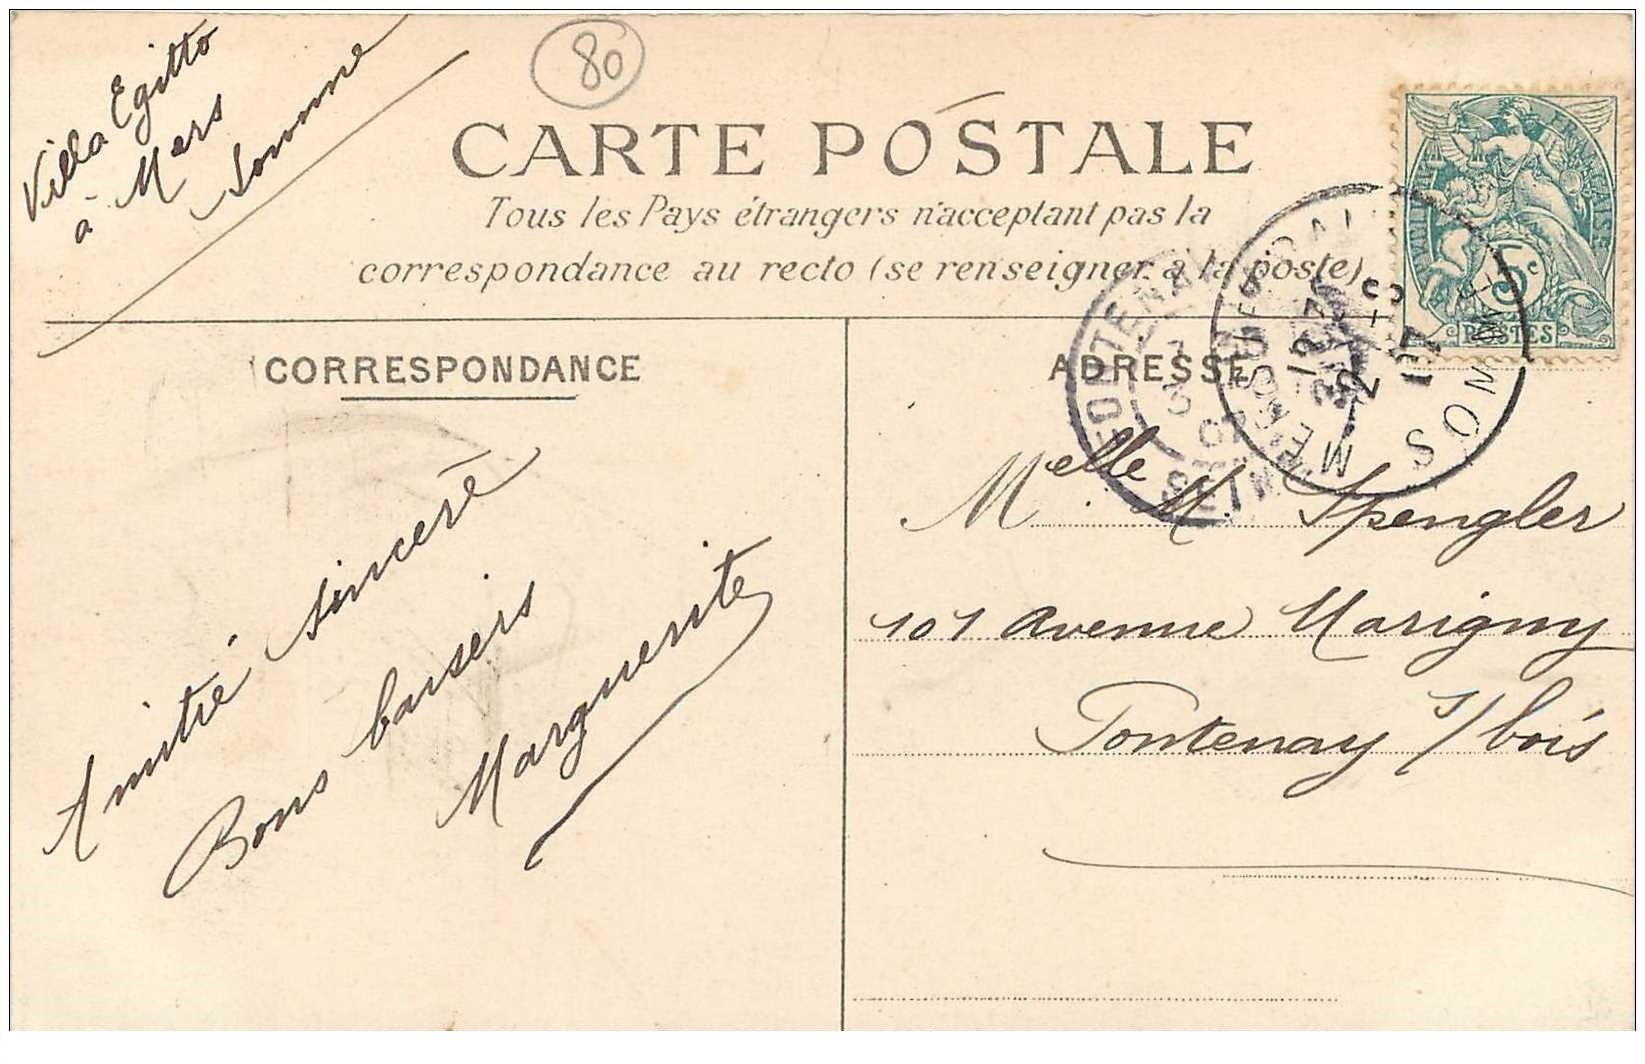 Villa Egitto
à Mers
Somme
80
CARTE POSTALE
Tous les Pays étrangers n'acceptant pas la
correspondance au recto (se renseigner à la poste).
CORRESPONDANCE
Amitié sincère
Bons baisers
Marguerite
ADRESSE
Melle M. Spengler
101 Avenue Marigny
Fontenay s/ bois
FRANÇAISE
5c
POSTES
SOMME
FONTENAY
07